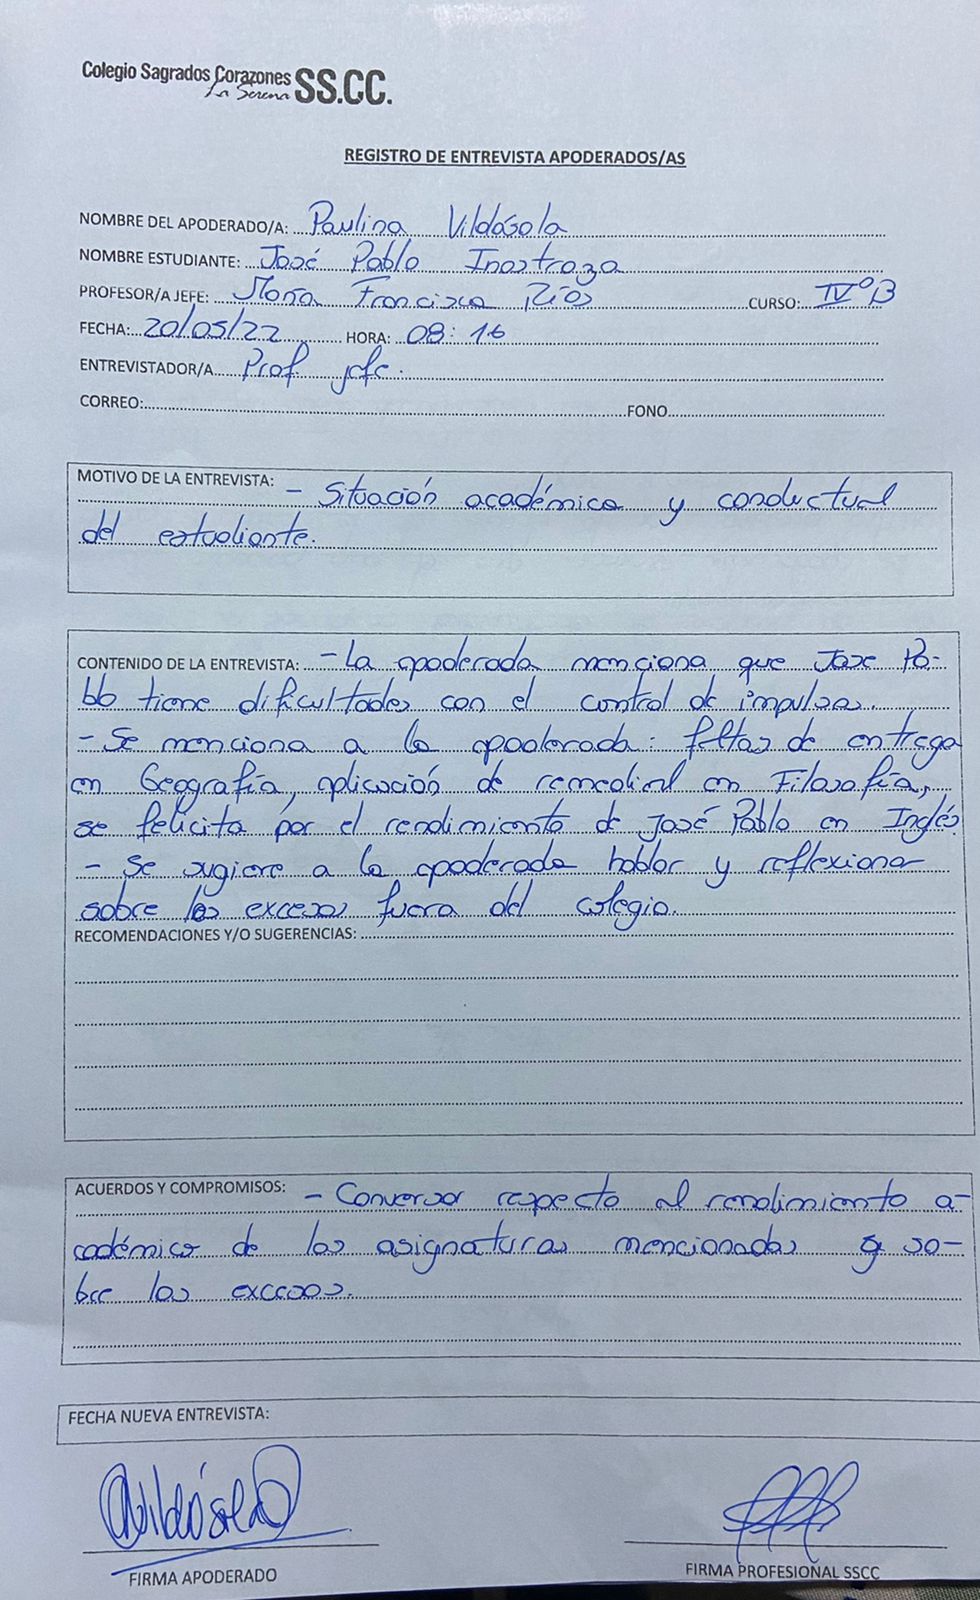 Colegio Sagrados Corazones SS.CC.
La Serena
REGISTRO DE ENTREVISTA APODERADOS/AS
NOMBRE DEL APODERADO/A: Paulina Vildósola
NOMBRE ESTUDIANTE: José Pablo Inostroza
PROFESOR/A JEFE: María Francisca Ríos CURSO: IV°B
FECHA: 20/05/22 HORA: 08:16
ENTREVISTADOR/A Prof jefe.
CORREO: FONO
MOTIVO DE LA ENTREVISTA: - Situación académica y conductual
del estudiante.
CONTENIDO DE LA ENTREVISTA: - La apoderada menciona que Jose Pa-
blo tiene dificultades con el control de impulsos.
- Se menciona a la apoderada: faltas de entrega
en Geografía, aplicación de remedial en Filosofía,
se felicita por el rendimiento de José Pablo en Inglés
- Se sugiere a la apoderada hablar y reflexionar
sobre los excesos fuera del colegio.
RECOMENDACIONES Y/O SUGERENCIAS:
ACUERDOS Y COMPROMISOS: - Conversar respecto al rendimiento a-
cadémico de las asignaturas mencionadas y so-
bre los excesos.
FECHA NUEVA ENTREVISTA:
Vildósola
FIRMA APODERADO FIRMA PROFESIONAL SSCC